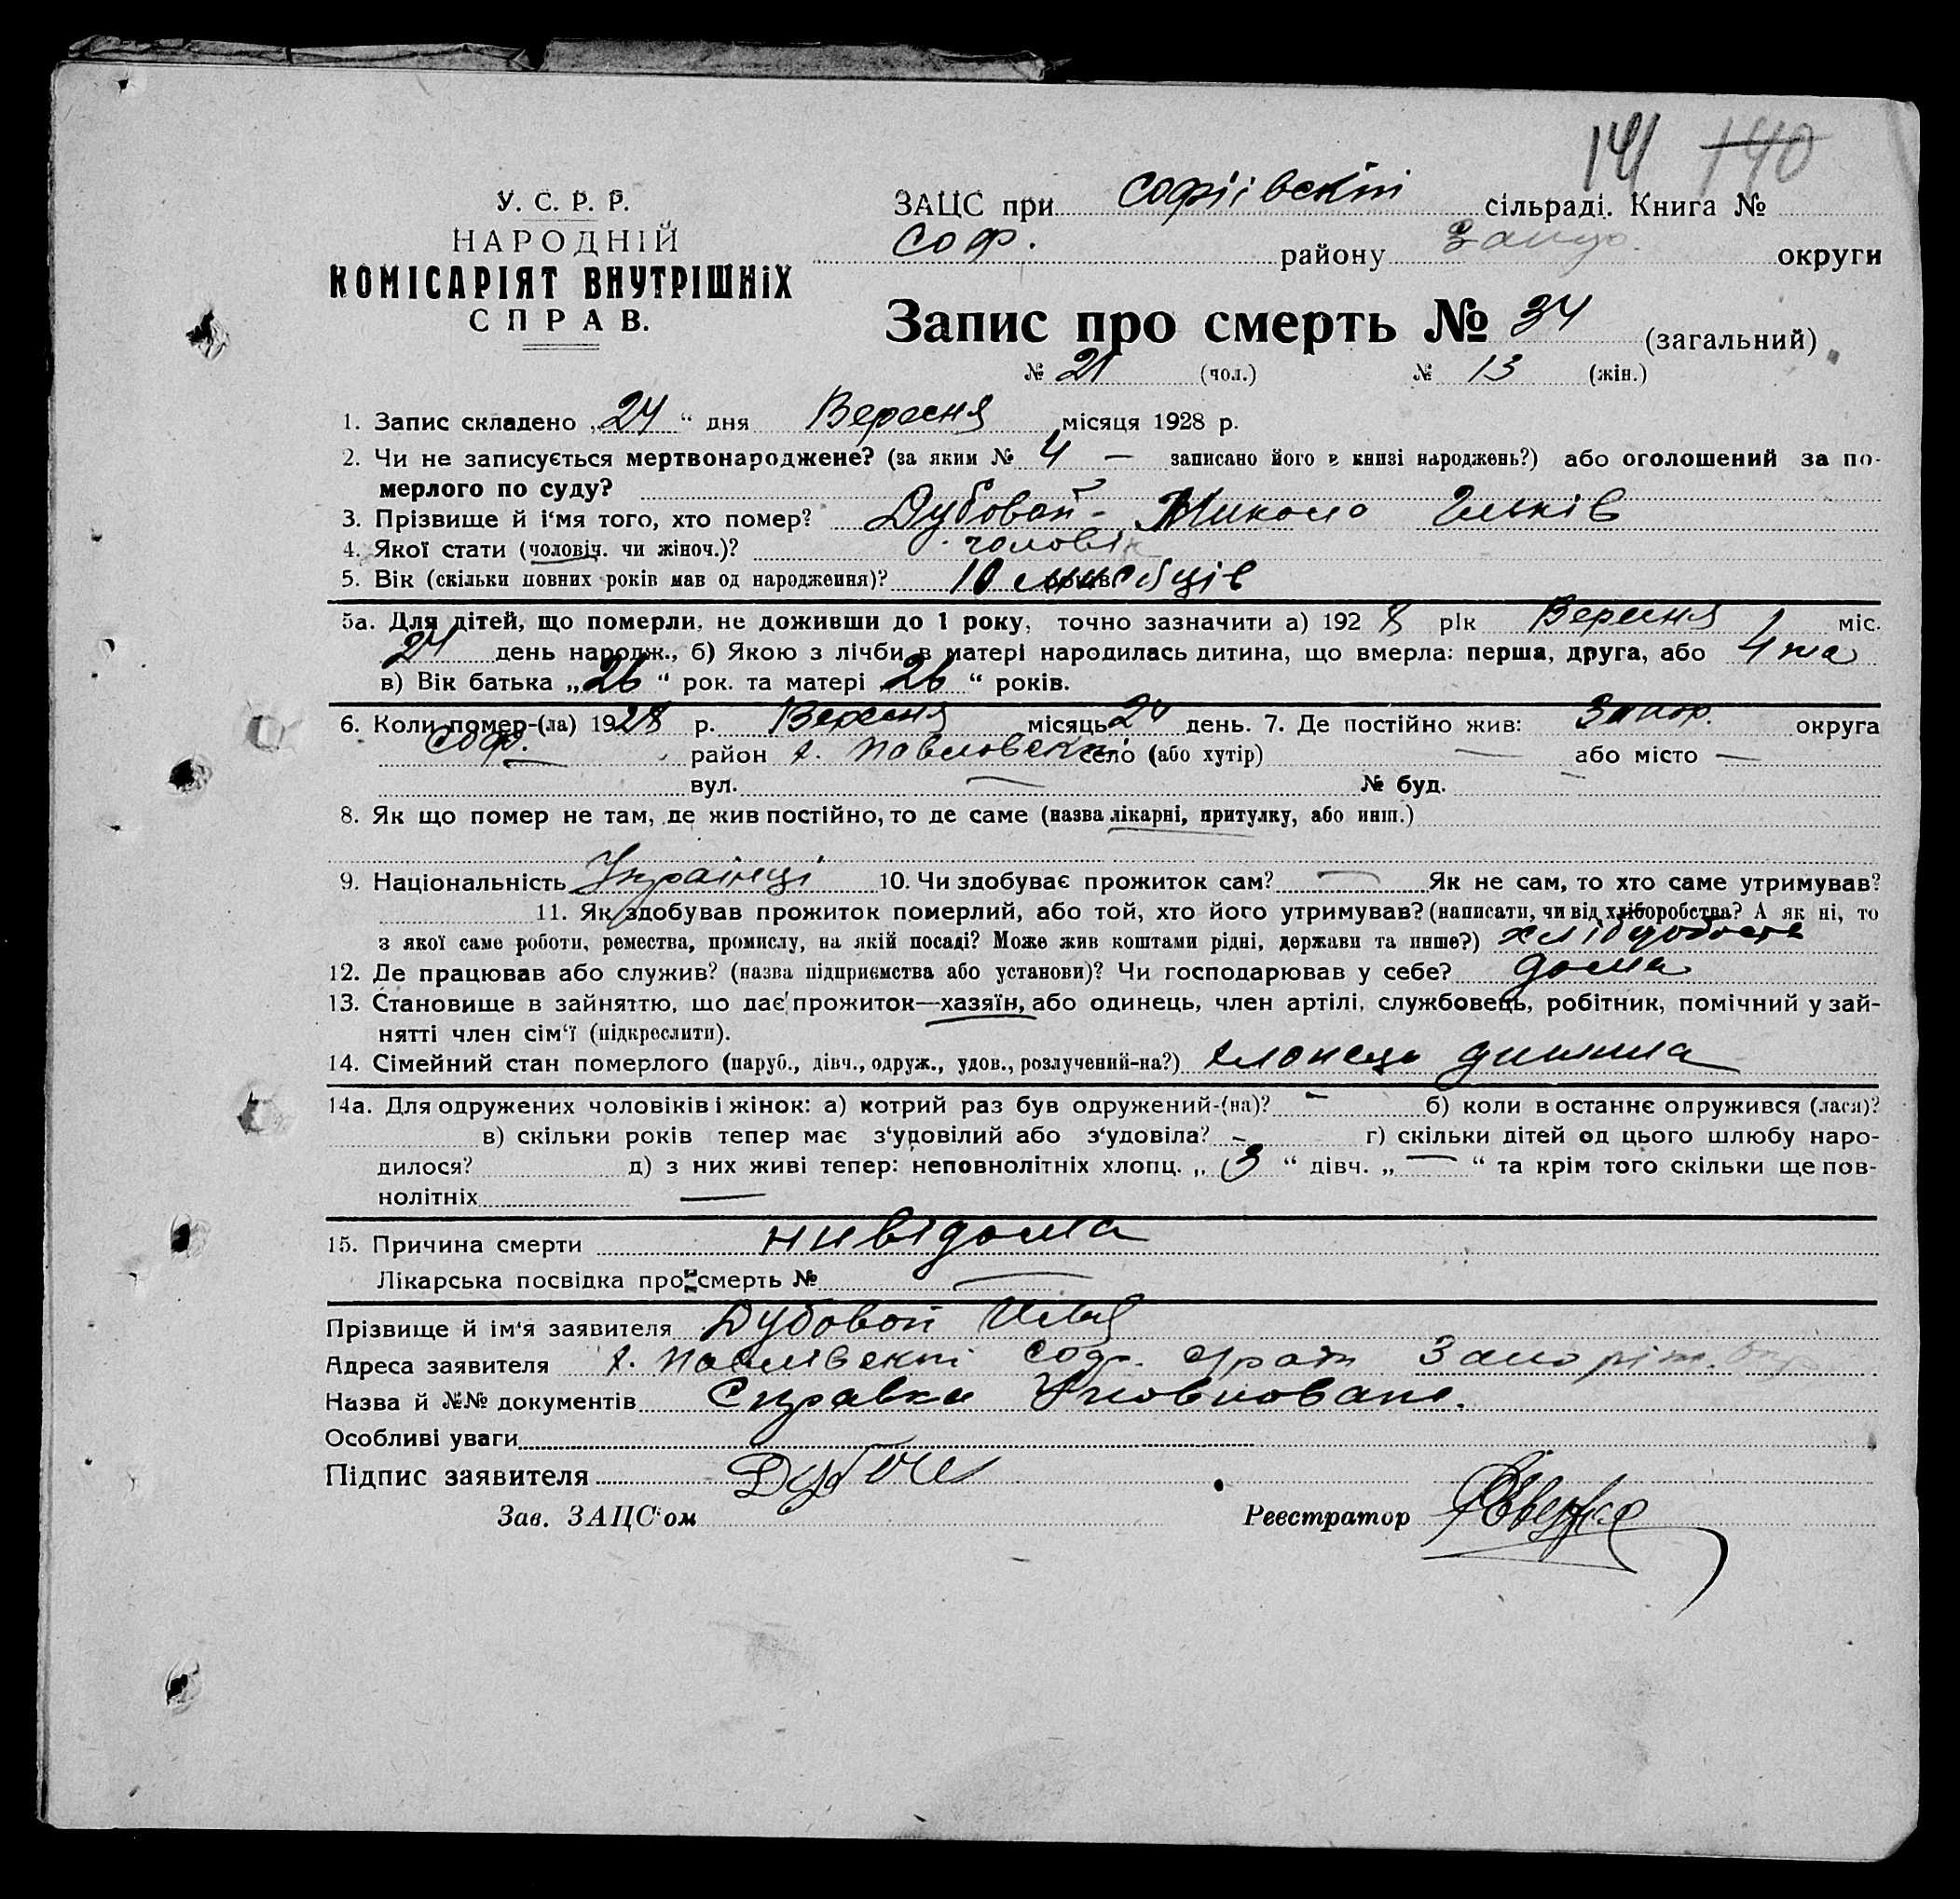 141 140
У. С. Р. Р.
НАРОДНІЙ
КОМІСАРІЯТ ВНУТРІШНІХ
СПРАВ.
ЗАЦС при Софіївскій сільраді. Книга №
Соф. району Запор. округи
Запис про смерть № 34 (загальний)
№ 21 (чол.) № 13 (жін.)
1. Запис складено „24“ дня Вересня місяця 1928 р.
2. Чи не записується мертвонароджене? (за яким № 4 — записано його в книзі народжень?) або оголошений за по-
мерлого по суду?
3. Прізвище й і'мя того, хто помер? Дубовой - Микола Ильків
4. Якої стати (чоловіч. чи жіноч.)? чоловік
5. Вік (скільки повних років мав од народження)? 10 місяців
5а. Для дітей, що померли, не доживши до 1 року, точно зазначити а) 1928 рік Вересня міс.
24 день народж., б) Якою з лічби в матері народилась дитина, що вмерла: перша, друга, або 4 та
в) Вік батька „26“ рок. та матері „26“ років.
6. Коли помер-(ла) 1928 р. Вересня місяць 24 день. 7. Де постійно жив: Запор. округа
Соф. район х. Павловскі село (або хутір) — або місто —
вул. — № буд. —
8. Як що помер не там, де жив постійно, то де саме (назва лікарні, притулку, або инш.)
9. Національність Українці 10. Чи здобуває прожиток сам? — Як не сам, то хто саме утримував?
11. Як здобував прожиток померлий, або той, хто його утримував? (написати, чи від хліборобства? А як ні, то
з якої саме роботи, ремества, промислу, на якій посаді? Може жив коштами рідні, держави та инше?)
12. Де працював або служив? (назва підприємства або установи)? Чи господарював у себе? дома
13. Становище в зайняттю, що дає прожиток—хазяїн, або одинець, член артілі, службовець, робітник, помічний у зай-
нятті член сім'ї (підкреслити).
14. Сімейний стан померлого (паруб., дівч., одруж., удов., розлучений-на?) хлопець дитина
14а. Для одружених чоловіків і жінок: а) котрий раз був одружений-(на)? — б) коли в останнє опружився (лася)?
в) скільки років тепер має з'удовілий або з'удовіла? — г) скільки дітей од цього шлюбу наро-
дилося? д) з них живі тепер: неповнолітніх хлопц. „3“ дівч. „—“ та крім того скільки ще пов-
нолітніх —
15. Причина смерти нивідома
Лікарська посвідка про смерть № —
Прізвище й ім'я заявителя Дубовой Илья
Адреса заявителя х. Павлівскі Соф. Запоріж. окр
Назва й №№ документів Справка
Особливі уваги
Підпис заявителя Дубовой
Зав. ЗАЦС'ом Реестратор